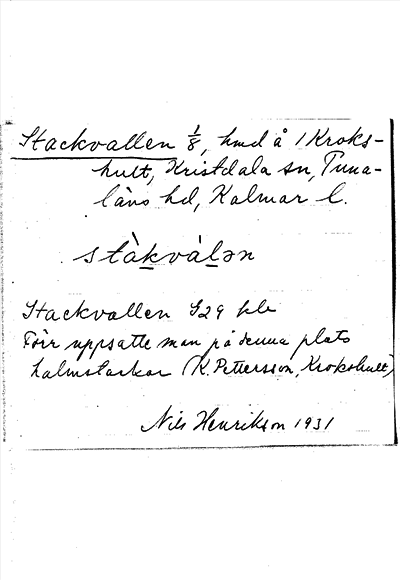 Stackvallen 1/8, hmd å 1 Kroks-
hult, Kristdala sn, Tuna-
läns hd, Kalmar l.
stàkvàlən
Stackvallen G29 kla
Förr uppsatte man på denna plats
halmstackar (K. Pettersson, Krokshult)
Nils Henrikson 1931